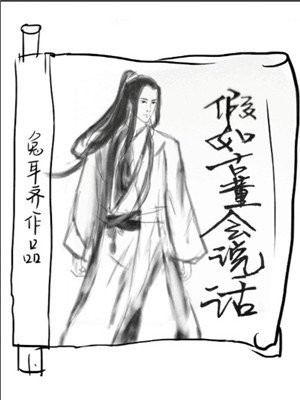 假如古董会说话
兔耳齐作品